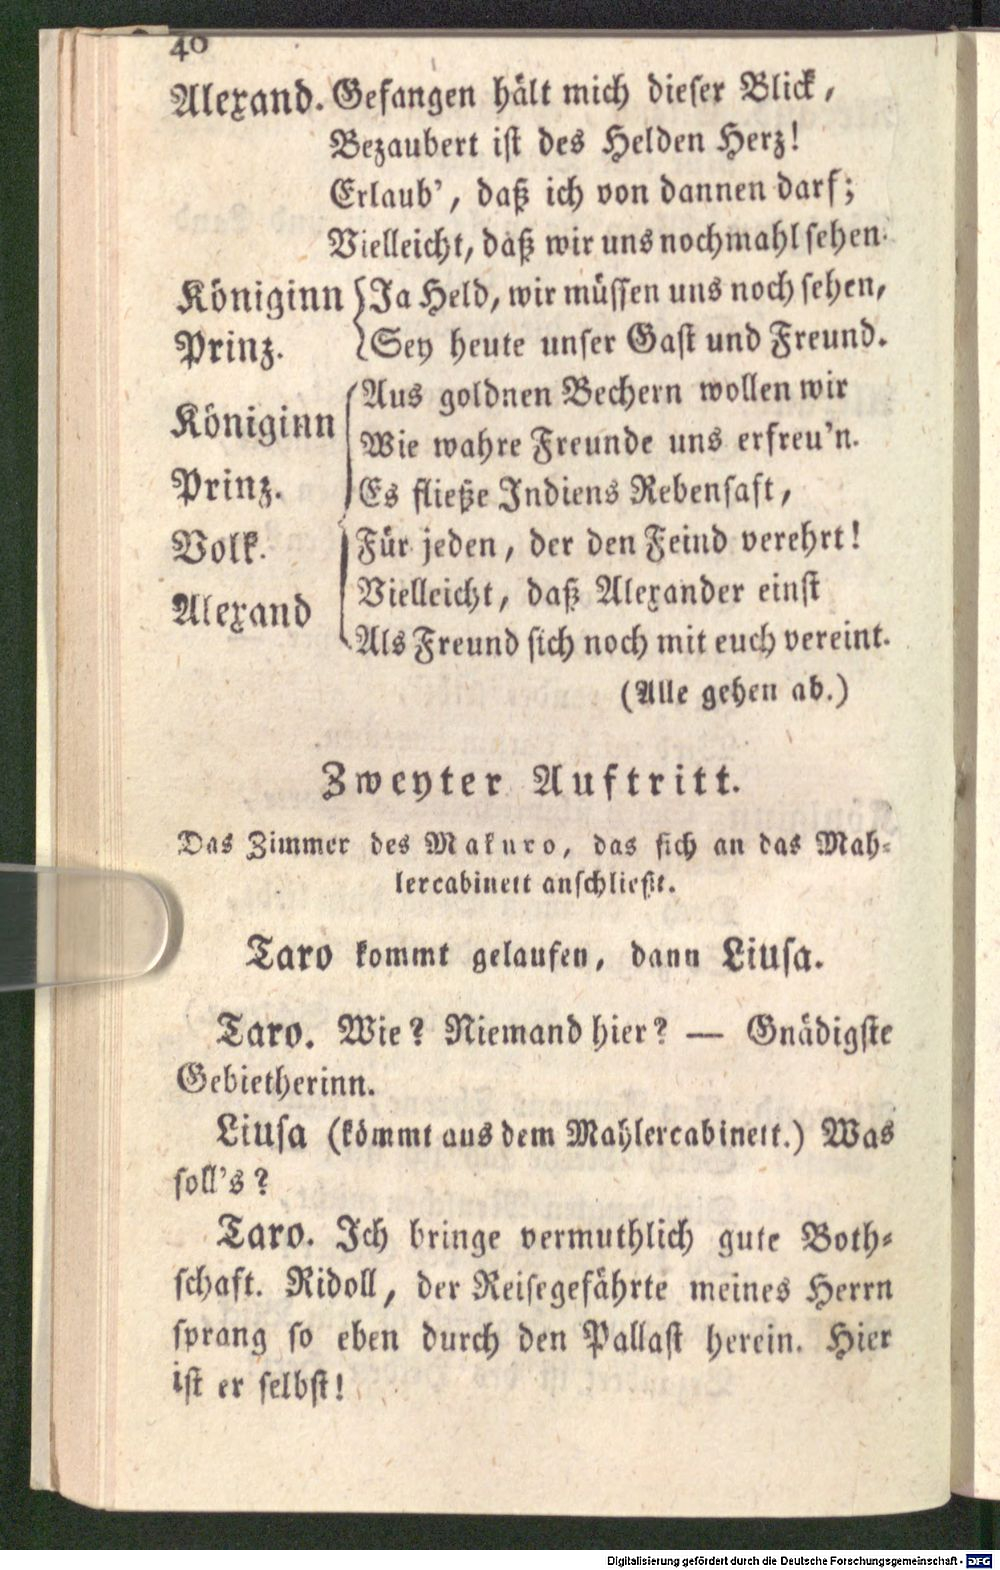 40
Alexand. Gefangen hält mich dieser Blick,
Bezaubert ist des Helden Herz!
Erlaub', daß ich von dannen darf;
Vielleicht, daß wir uns nochmahl sehen.
Königinn Ja Held, wir müssen uns noch sehen,
Prinz. Sey heute unser Gast und Freund.
Aus goldnen Bechern wollen wir
Königinn
Wie wahre Freunde uns erfreu'n.
Prinz. Es fließe Indiens Rebensaft,
Volk. Für jeden, der den Feind verehrt!
Vielleicht, daß Alexander einst
Alexand
Als Freund sich noch mit euch vereint.
(Alle gehen ab.)
Zweyter Auftritt.
Das Zimmer des Makuro, das sich an das Mah-
lercabinett anschließt.
Taro kommt gelaufen, dann Liusa.
Taro. Wie? Niemand hier? — Gnädigste
Gebietherinn.
Liusa (kömmt aus dem Mahlercabinett.) Was
soll's?
Taro. Ich bringe vermuthlich gute Both-
schaft. Ridoll, der Reisegefährte meines Herrn
sprang so eben durch den Pallast herein. Hier
ist er selbst!
Digitalisierung gefördert durch die Deutsche Forschungsgemeinschaft - DFG